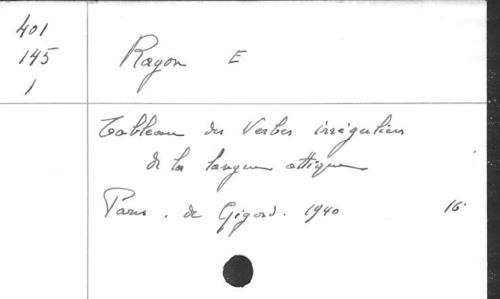 401
145
1
Ragon E
Tableau des Verbes irréguliers
de la langue attique
Paris. de Gigord. 1940 16.